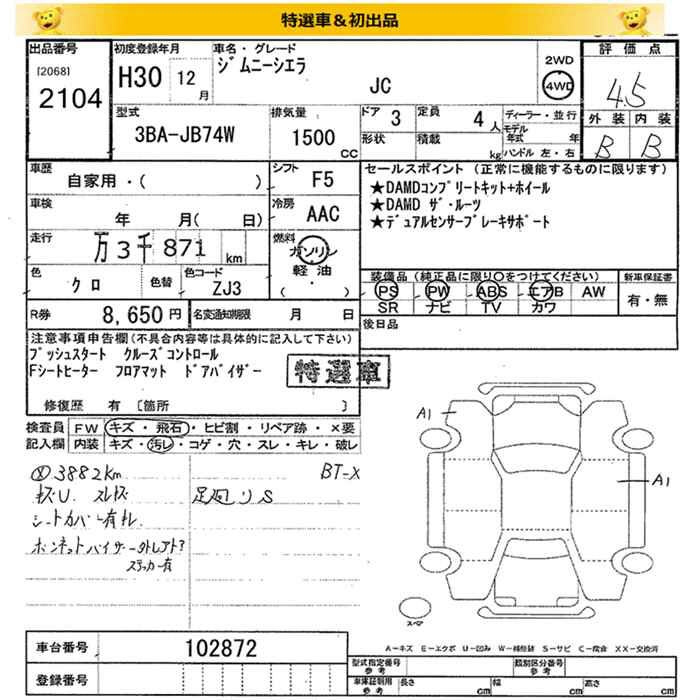 特選車＆初出品
出品番号 初度登録年月 車名・グレード 評価点
[2068] H30 12月 ジムニーシエラ 2WD
2104 JC 4WD 4.5
型式 排気量 ドア 3 定員 4人 ディーラー・並行 外装 内装
3BA-JB74W 1500 CC 形状 積載 kg モデル年式 年 B B
ハンドル 左・右
車歴 シフト セールスポイント (正常に機能するものに限ります)
自家用・( ) F5 ★DAMDコンプリートキット+ホイール
車検 冷房 ★DAMD ザ・ルーツ
年 月( 日) AAC ★デュアルセンサーブレーキサポート
走行 燃料
万3千871 km ガソリン
軽油
( ・ )
色 色替 色コード 装備品 (純正品に限り○をつけてください) 新車保証書
クロ ZJ3 PS PW ABS エアB AW 有・無
SR ナビ TV カワ
R券 8,650円 名変通知期限 月 日 後日品
注意事項申告欄(不具合内容等は具体的に記入して下さい)
プッシュスタート クルーズコントロール
Fシートヒーター フロアマット ドアバイザー 特選車
修復歴 有 [箇所 ]
検査員 FW キズ・飛石・ヒビ割・リペア跡・×要
記入欄 内装 キズ・汚レ・コゲ・穴・スレ・キレ・破レ
3882km BT-X
キズU. スレキズ 足廻りS
シートカバー有
ボンネットバイザー
ステッカー有
A1
A1
スペア
車台番号 102872
A－キズ E－エクボ U－凹み W－補修跡 S－サビ C－腐食 XX－交換済
登録番号 型式指定番号 参考 類別区分番号 参考
車庫証明用 参考 長さ cm 幅 cm 高さ cm